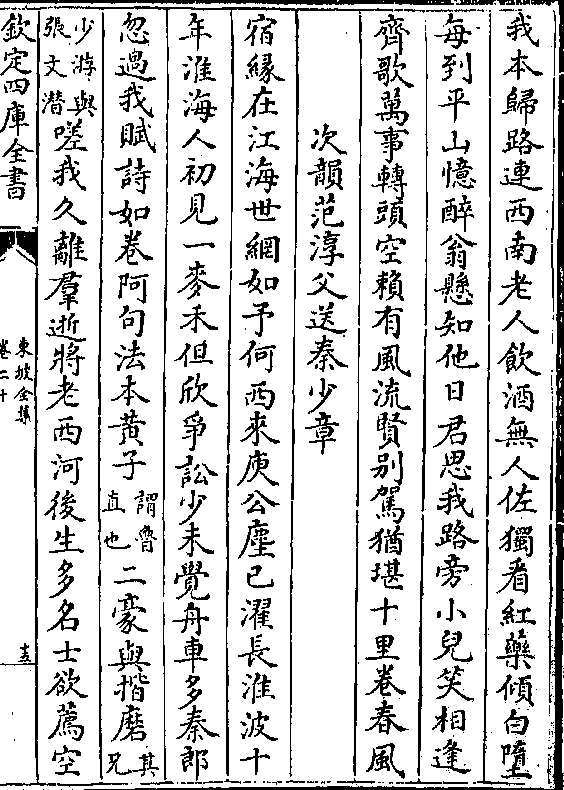 我本歸路連西南老人飲酒無人佐獨看紅藥傾白墮
每到平山憶醉翁懸知他日君思我路旁小兒笑相逢
齊歌萬事轉頭空賴有風流賢别駕猶堪十里卷春風
次韻范淳父送秦少章
宿緣在江海世網如予何西來庾公塵已濯長淮波十
年淮海人初見一麥禾但欣爭訟少未覺舟車多秦郎
忽過我賦詩如卷阿句法本黄子謂魯直也二豪與揩磨其兄
少游與張文潛嗟我久離羣逝將老西河後生多名士欲薦空
欽定四庫全書
東坡全集
卷二十
十五